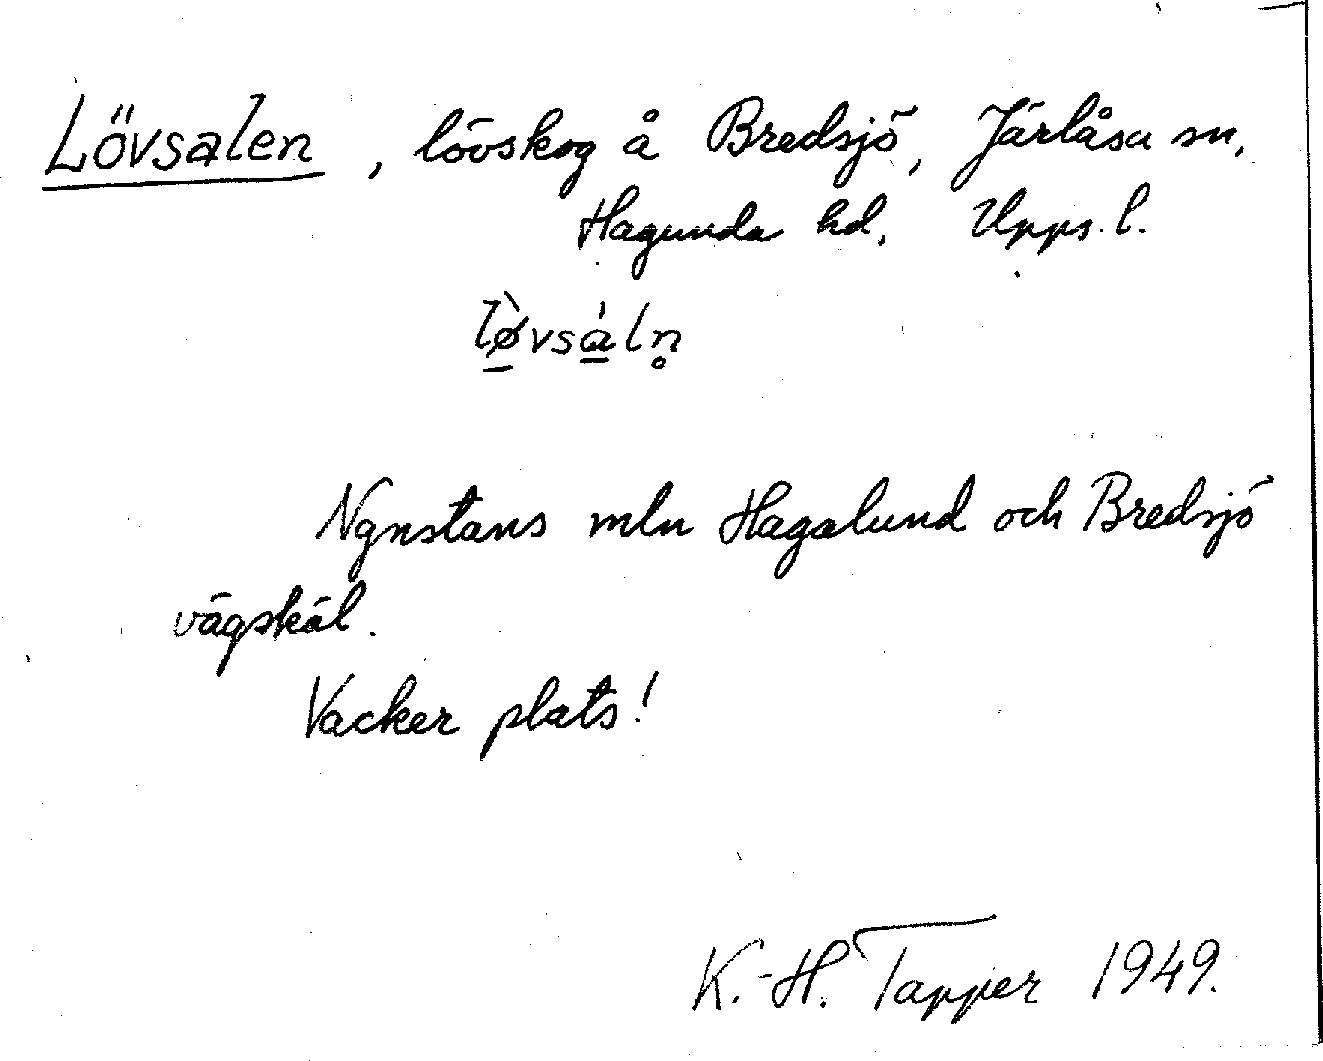 Lövsalen, lövskog å Bredsjö, Järlåsa sn,
Hagunda hd, Upps. l.
lø̱̀vsá̱ln̥
Ngnstans mln Hagalund och Bredsjö
vägskäl.
Vacker plats!
K.-H. Tapper 1949.